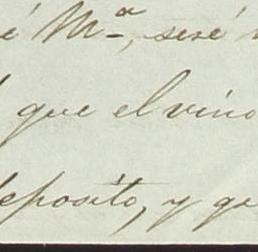 é Mª, seré
que el vino
deposito, y que